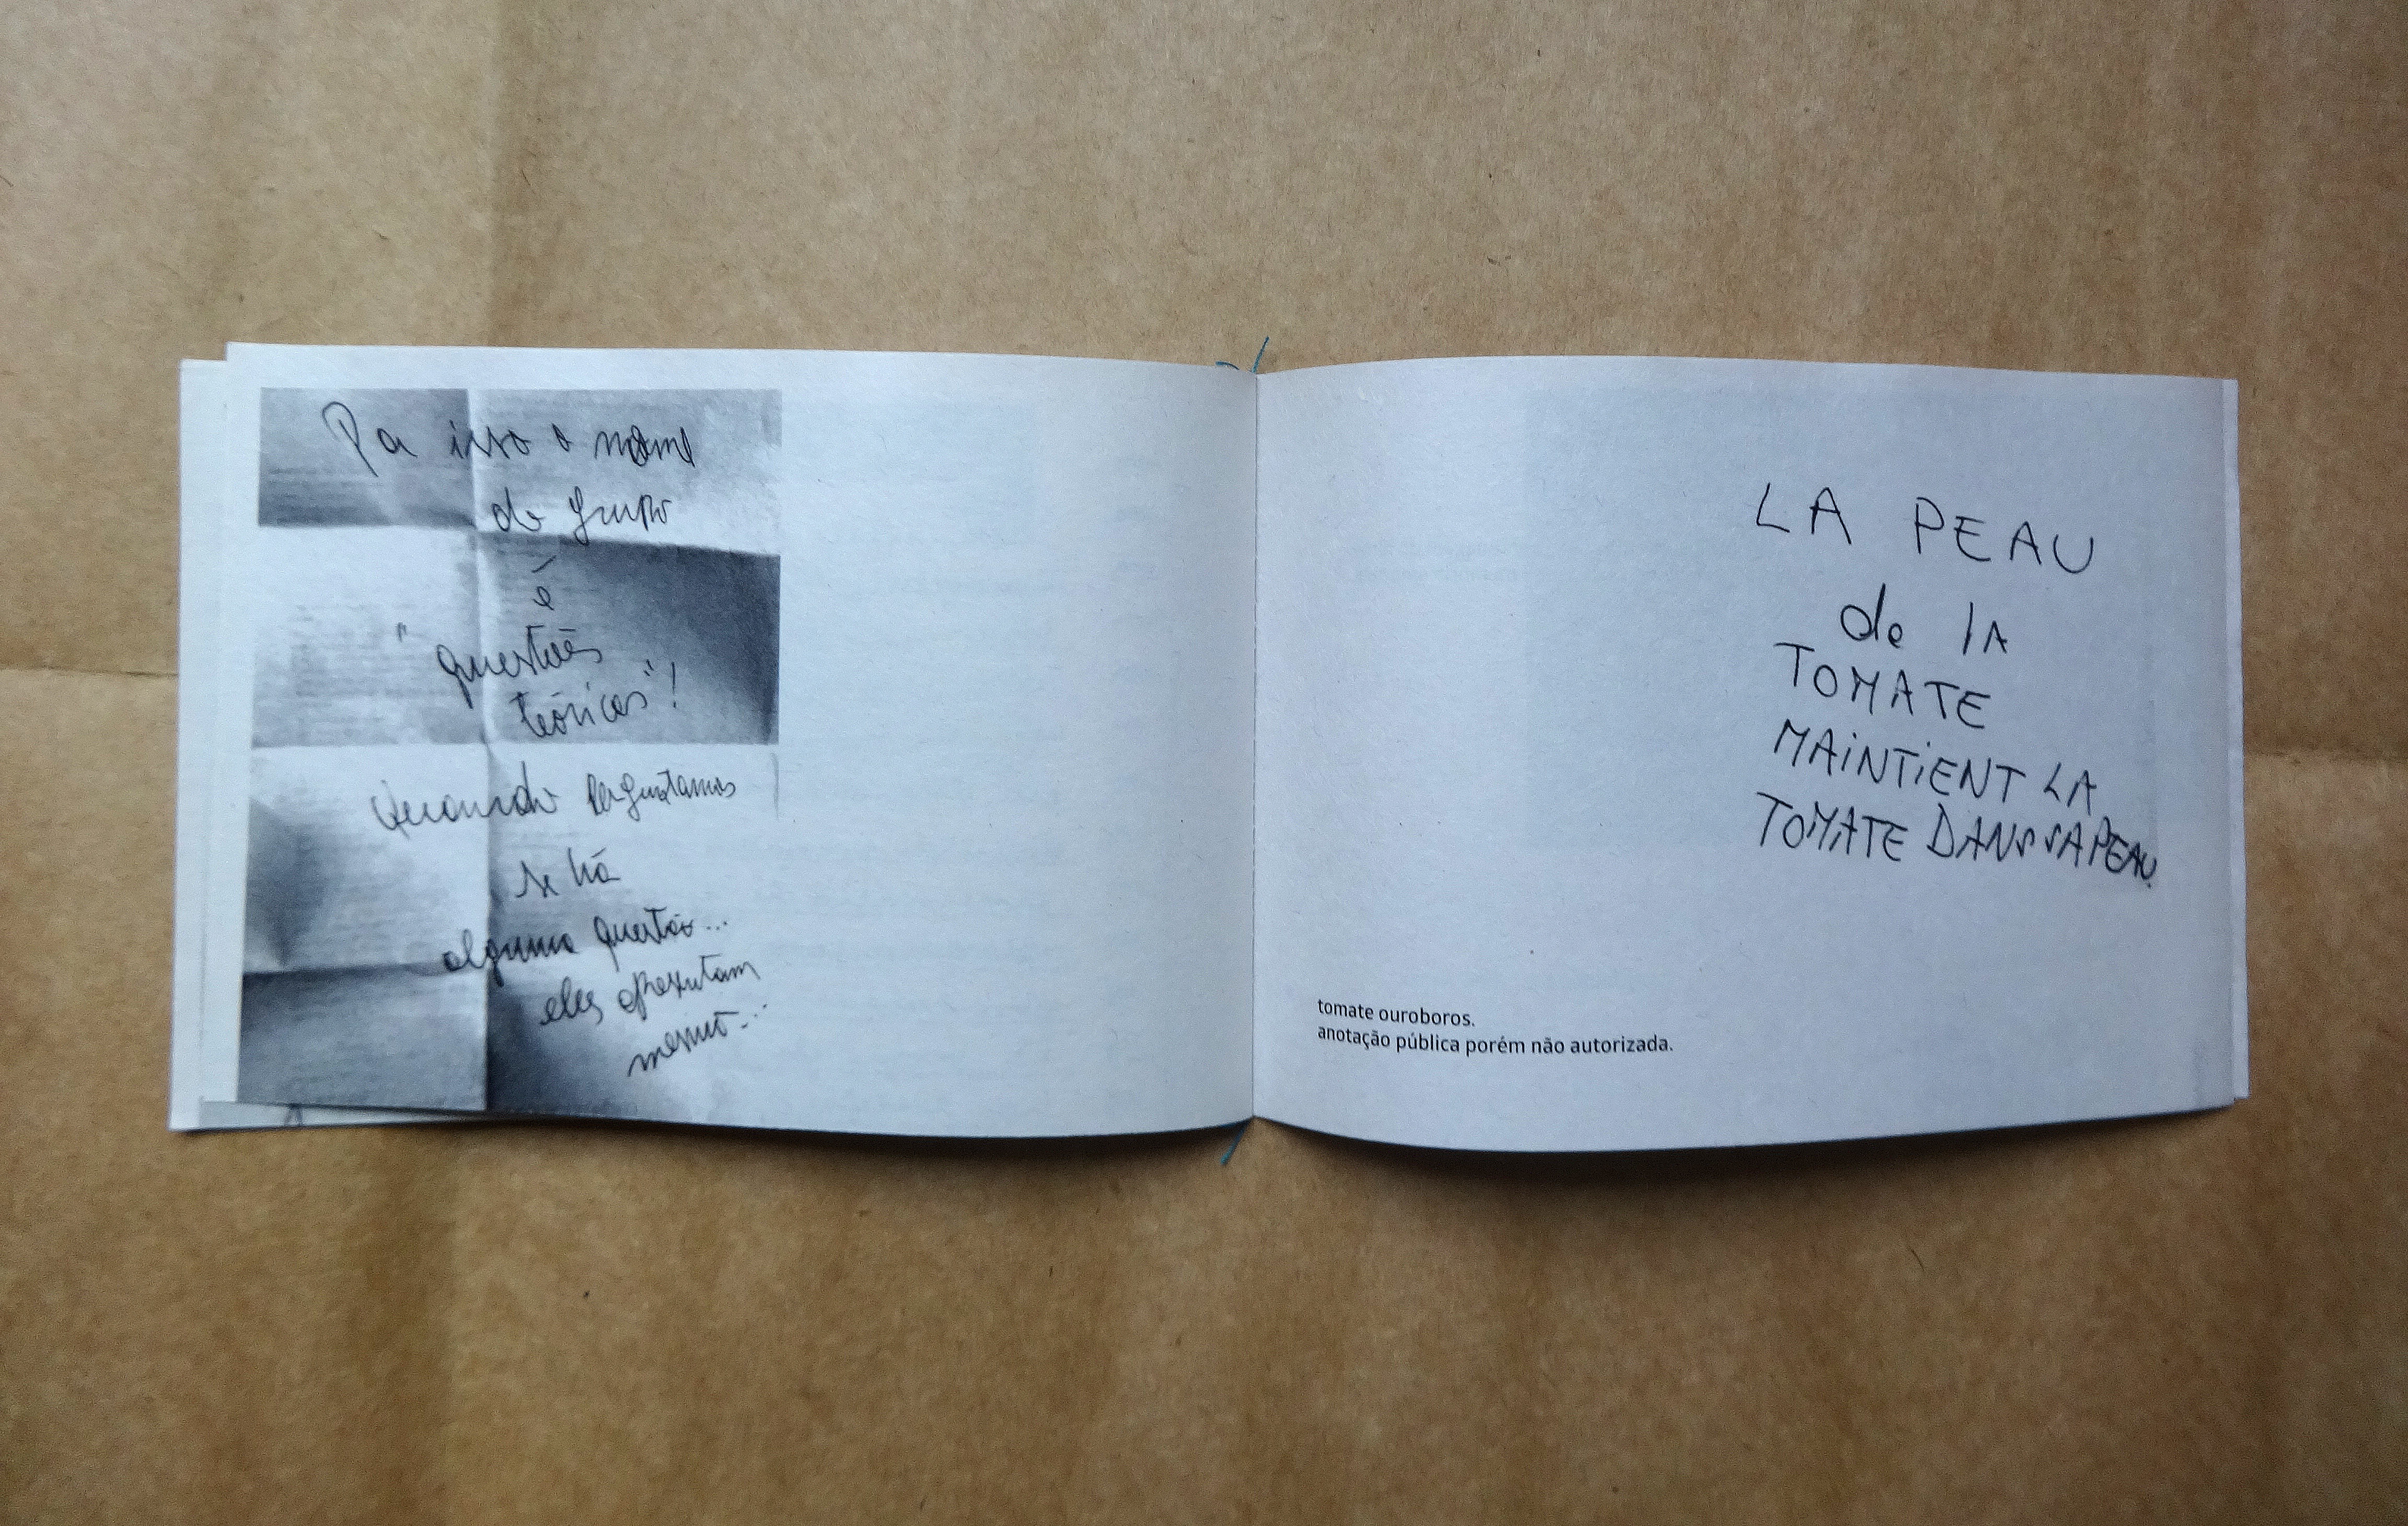 Por isso o nome
do grupo
é
"questões
teóricas"!
Quando perguntamos
se há
alguma questão...
eles apresentam
mesmo...
LA PEAU
de lA
TOMATE
MAiNTiENT LA
TOMATE DANS SA PEAU.
tomate ouroboros.
anotação pública porém não autorizada.